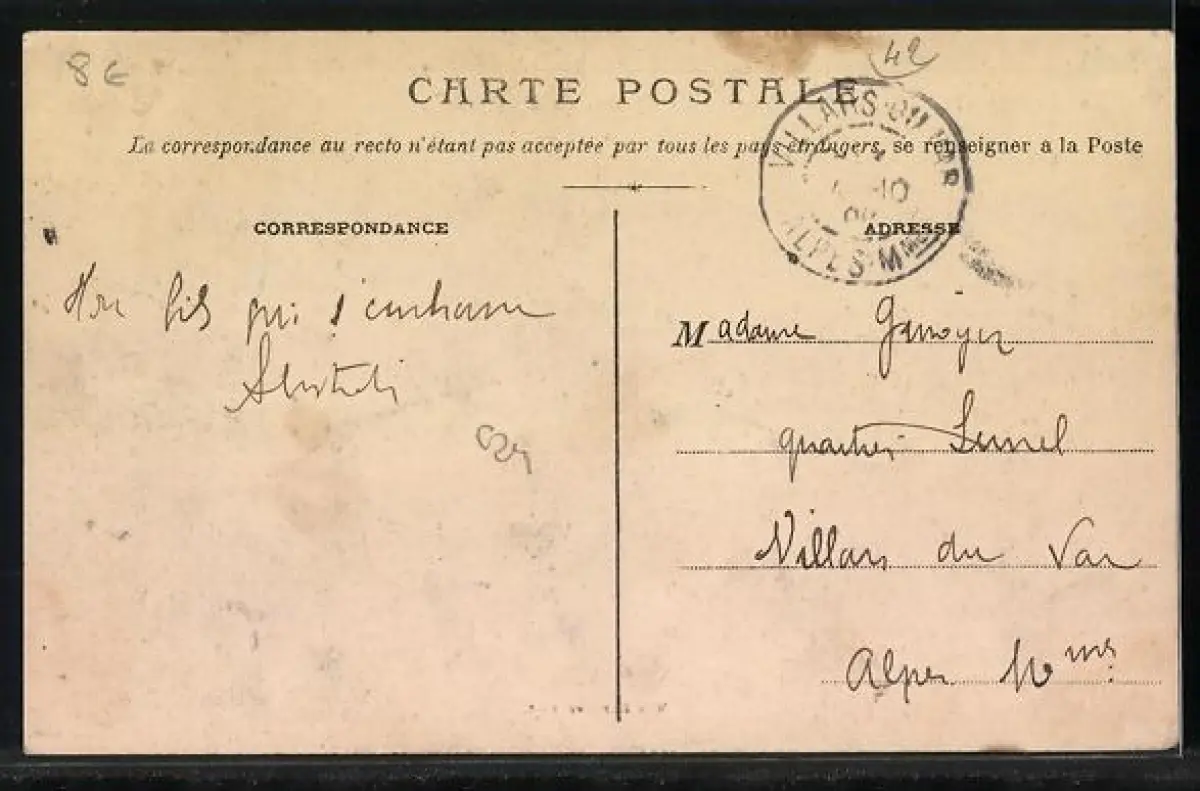 8€
42
CARTE POSTALE
La correspondance au recto n'étant pas acceptée par tous les pays étrangers, se renseigner a la Poste
VILLARS DU VAR
ALPES-Mmes
CORRESPONDANCE
ADRESSE
fils qui s'embrasse
Madame
quartier
Villars du Var
Alpes Mmes